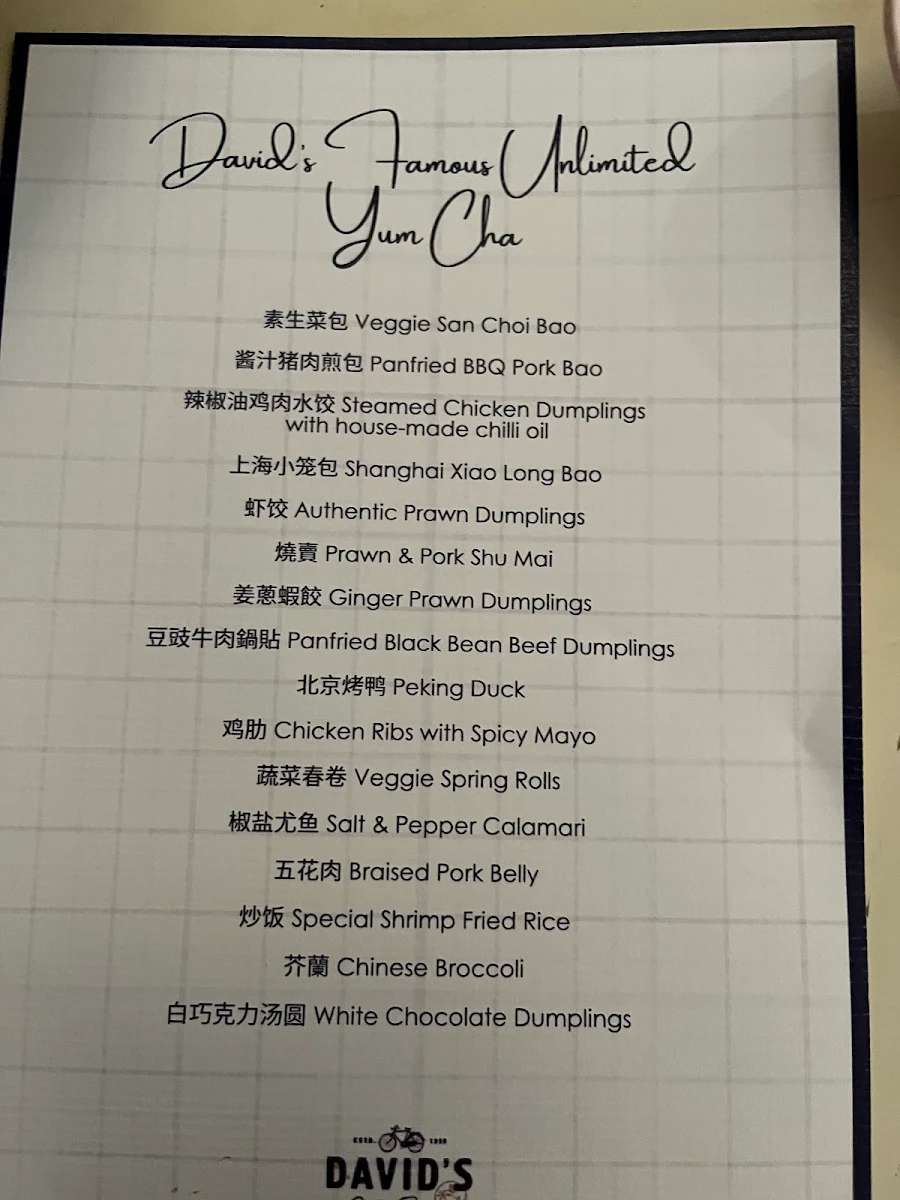 David's Famous Unlimited
Yum Cha
素生菜包 Veggie San Choi Bao
酱汁猪肉煎包 Panfried BBQ Pork Bao
辣椒油鸡肉水饺 Steamed Chicken Dumplings
with house-made chilli oil
上海小笼包 Shanghai Xiao Long Bao
虾饺 Authentic Prawn Dumplings
燒賣 Prawn & Pork Shu Mai
姜蔥蝦餃 Ginger Prawn Dumplings
豆豉牛肉鍋貼 Panfried Black Bean Beef Dumplings
北京烤鸭 Peking Duck
鸡肋 Chicken Ribs with Spicy Mayo
蔬菜春卷 Veggie Spring Rolls
椒盐尤鱼 Salt & Pepper Calamari
五花肉 Braised Pork Belly
炒饭 Special Shrimp Fried Rice
芥蘭 Chinese Broccoli
白巧克力汤圆 White Chocolate Dumplings
ESTD. 1998
DAVID'S